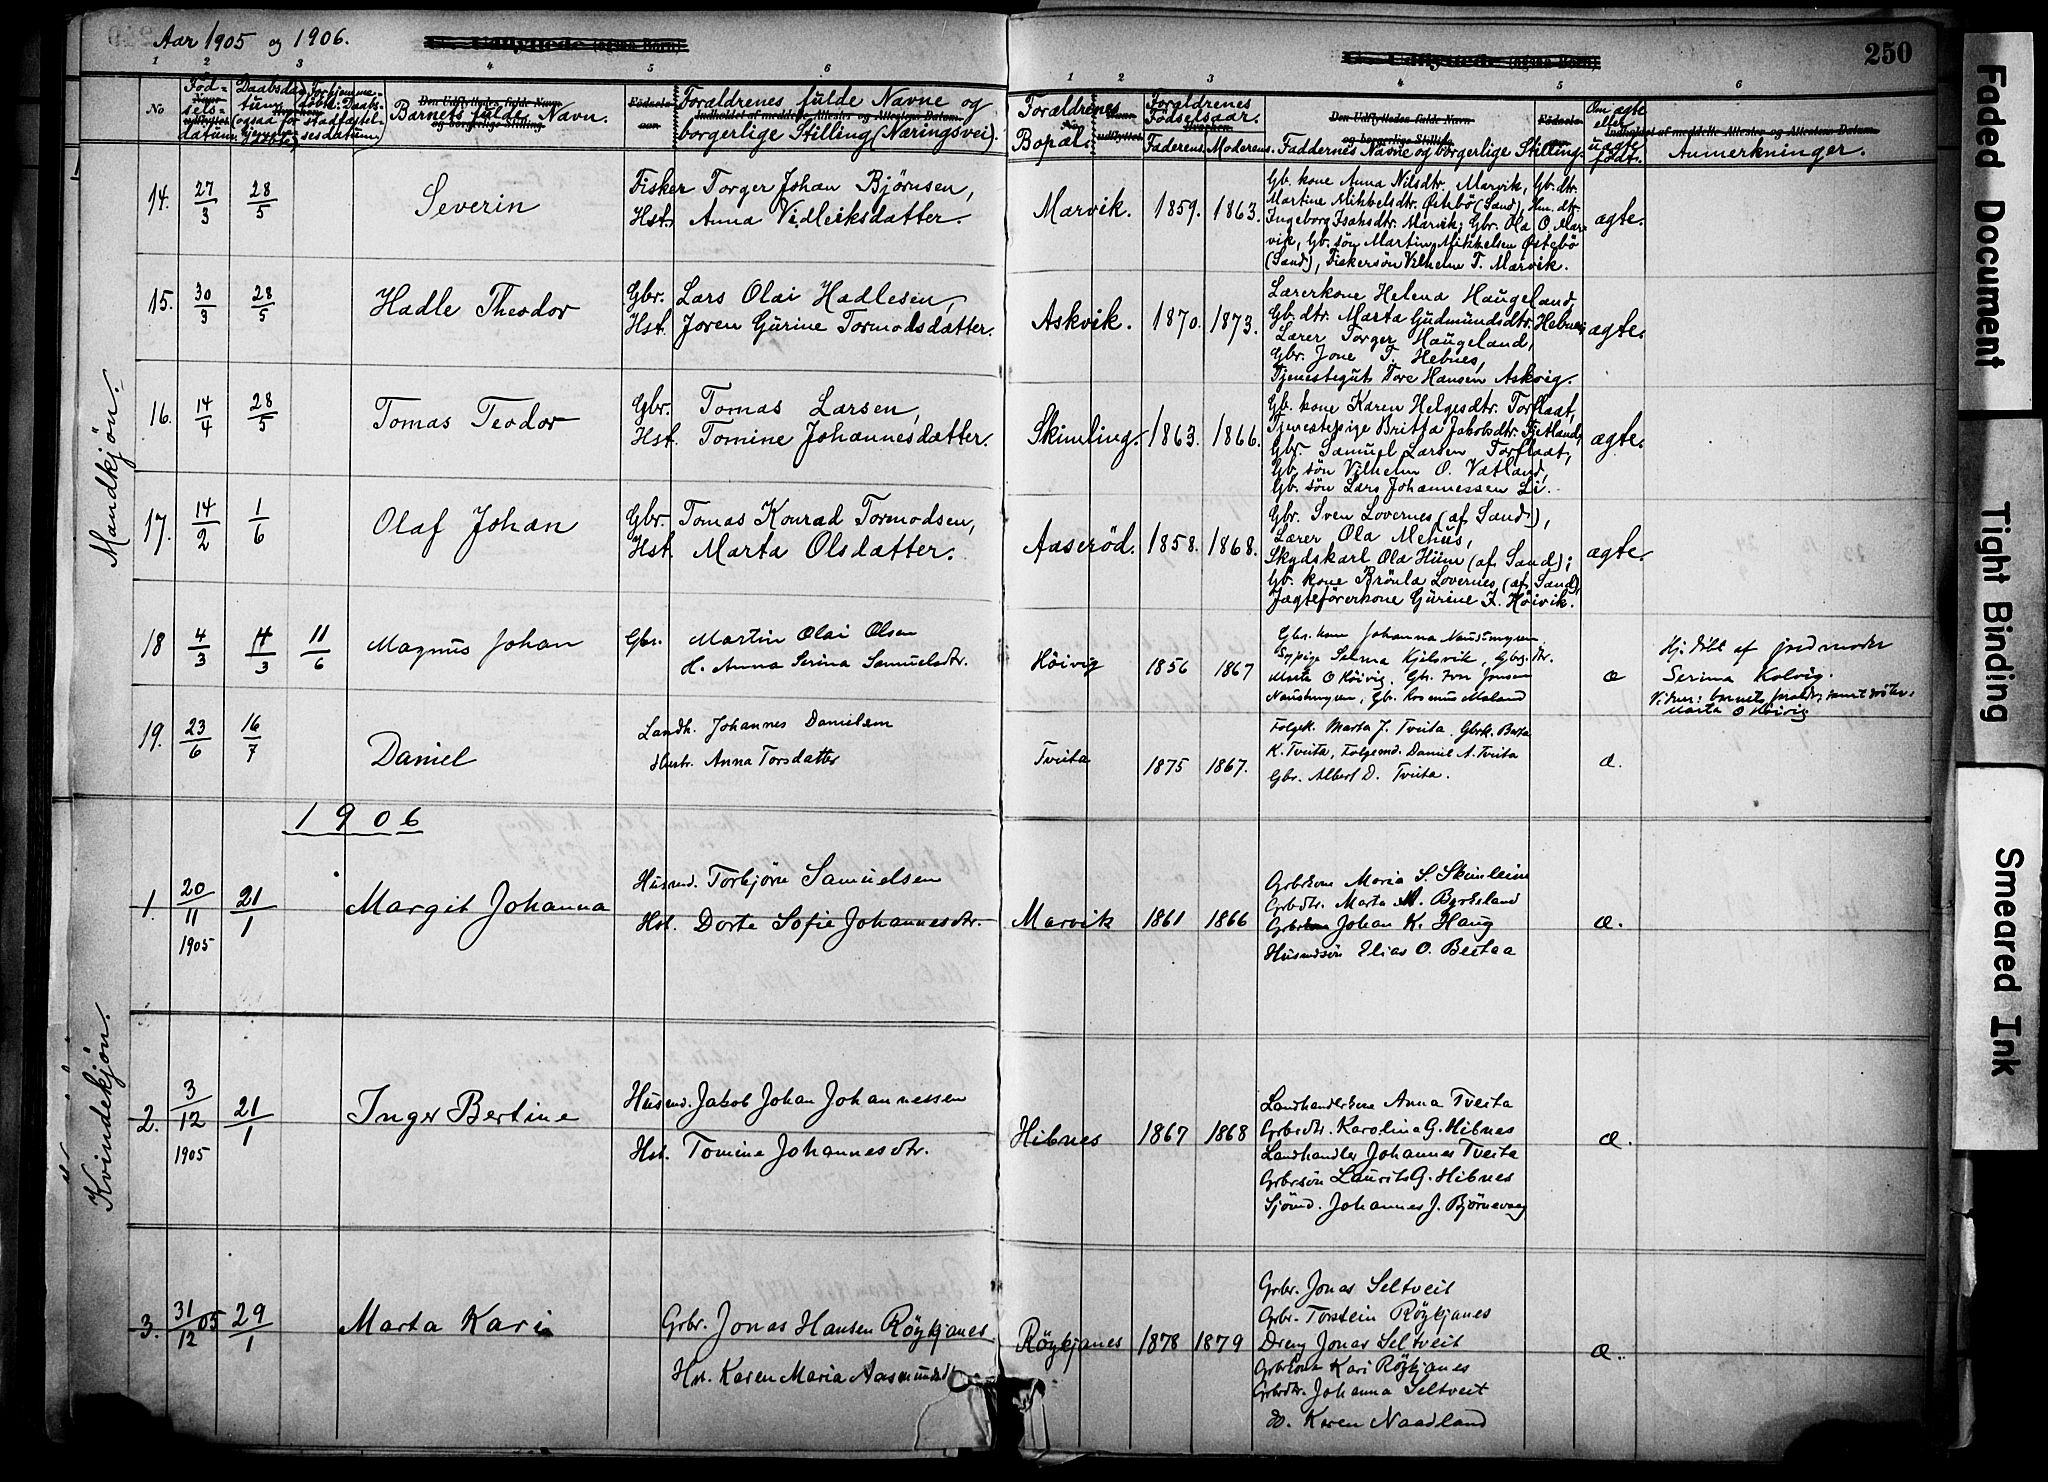 Aar 1905 og 1906.
250
1 2 3 4 5 6
1 2 3 4 5 6
No
Fød-
sels-
datum.
Daabsda-
tum
(ogsaa for
hjemme-
døbte).
For hjemme-
døbte: Daabs-
stadfæstel-
sesdatum.
Barnets fulde Navn.
Forældrenes fulde Navne og
borgerlige Stilling (Næringsvei).
Forældrenes
Bopæl.
Forældrenes
Fødselsaar.
Faderens. Moderens.
Faddernes Navne og borgerlige Stilling.
Om ægte
eller
uægte
født.
Anmerkninger.
Mandkjøn.
14. 27/3 28/5 Severin
Fisker Torger Johan Bjørnsen,
Hst. Anna Vidleiksdatter.
Marvik. 1859. 1863.
Gb. kone Anna Nilsdtr. Marvik, Gb. dtr.
Martine Mikkelsdtr. Østebö (Sand), Hm. dtr.
Ingeborg Isaksdtr. Marvik, Gbr. Ola O. Mar-
vik, Gb. søn Martin Mikkelsen Østebö
(Sand), Fiskersøn Vilhelm T. Marvik.
ægte.
15. 30/3 28/5 Hadle Theodor
Gbr. Lars Olai Hadlesen,
Hst. Joren Gurine Tormodsdatter.
Askvik. 1870. 1873.
Lærerkone Helena Haugeland,
Gb. dtr. Marta Gudmundsdtr. Hebnes,
Lærer Torger Haugeland,
Gbr. Jone T. Hebnes,
Tjenestegut Tore Hansen Askvig.
ægte.
16. 14/4 28/5 Tomas Teodor
Gbr. Tomas Larsen,
Hst. Tomine Johannesdatter.
Skimling. 1863. 1866.
Gb. kone Karen Helgesdtr. Torflaat,
Tjenestepige Britta Jakobsdtr. Fjetland,
Gbr. Samuel Larsen Torflaat,
Gb. søn Vilhelm O. Vatland,
Gb. søn Lars Johannessen Li.
ægte.
17. 14/2 1/6 Olaf Johan
Gbr. Tomas Konrad Tormodsen,
Hst. Marta Olsdatter.
Aaseröd. 1858. 1868.
Gbr. Sven Lovernes (af Sand),
Lærer Ola Mehus,
Skydskarl Ola Hiim (af Sand);
Gb. kone Brönla Lovernes (af Sand)
Jagteförerkone Gurine I. Höivik.
ægte.
18 4/3 14/3 11/6 Magnus Johan
Gbr. Martin Olai Olsen
H. Anna Serina Samuelsdtr.
Höivig 1856 1867
Gbr. kone Johanna Naustmyren
Sypige Selma Kjelsvik, Gbrs. dtr.
Marta O Höivig, Gbr. Iver Jonsen
Naustmyren, Gb. Rasmus Maland
æ
Hj. döbt af jordmoder
Serina Kolvig.
Vidner: barnets forældre samt söster:
Marta O Höivig
19. 23/6 16/7 Daniel
Landh. Johannes Danielsen
Hustr. Anna Torsdatter
Tveita 1875 1867.
Folgek. Marta J. Tveita, Gbrk. Berta
K. Tveita, Folgemd. Daniel A. Tveita
Gbr. Albert D. Tveita.
æ.
1906
Kvindekjøn.
1. 20/11 1905 21/1 Margit Johanna
Husmd. Torbjørn Samuelsen
Hst. Dorte Sofie Johannesdtr.
Marvik 1861 1866
Grbrkone Maria S. Skimleim
Grbrdtr. Marta A. Byrkeland
Grbr Johan K. Haug
Husmdsön Elias O. Bertaa
æ.
2. 3/12 1905 21/1 Inger Bertine
Husmd. Jakob Johan Johannessen
Hst. Tomine Johannesdtr.
Hibnes 1867 1868
Landhandlerkone Anna Tveita
Grbrdtr. Karolina G. Hibnes
Landhandler Johannes Tveita
Grbrsön Laurits G. Hibnes
Sjömd. Johannes J. Björnevaag
æ.
3. 31/12 05 29/1 Marta Kari
Grbr. Jonas Hansen Röykjanes
Hst. Karen Maria Aasmundsd
Röykjanes 1878 1879
Grbr. Jonas Seltveit
Grbr. Torstein Röykjanes
Dreng Jonas Seltveit
Grbrkone Kari Röykjanes
Grbrdtr. Johanna Seltveit
do. Karen Naadland
æ.
Faded Document
Tight Binding
Smeared Ink